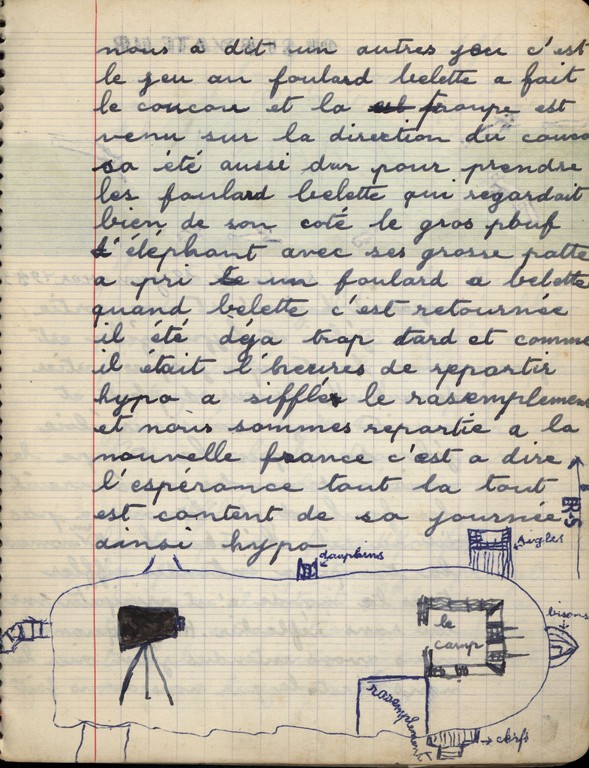 nous a dit un autres jeu c'est
le jeu au foulard belette a fait
le coucou et la troupe est
venu sur la direction du couco
sa été aussi dur pour prendre
les foulard belette qui regardait
bien de son coté le gros pouf
l'éléphant avec ses grosse patte
a pri un foulard a belette
quand belette c'est retournée
il été déja trap tard et comme
il était l'heures de repartir
hypo a siffler le rasemplement
et nous sommes repartie a la
nouvelle france c'est a dire
l'espérance tout la tout
est content de sa journée
ainsi hypo
dauphins
aigles
bisons
le
camp
rasemplement
cerfs